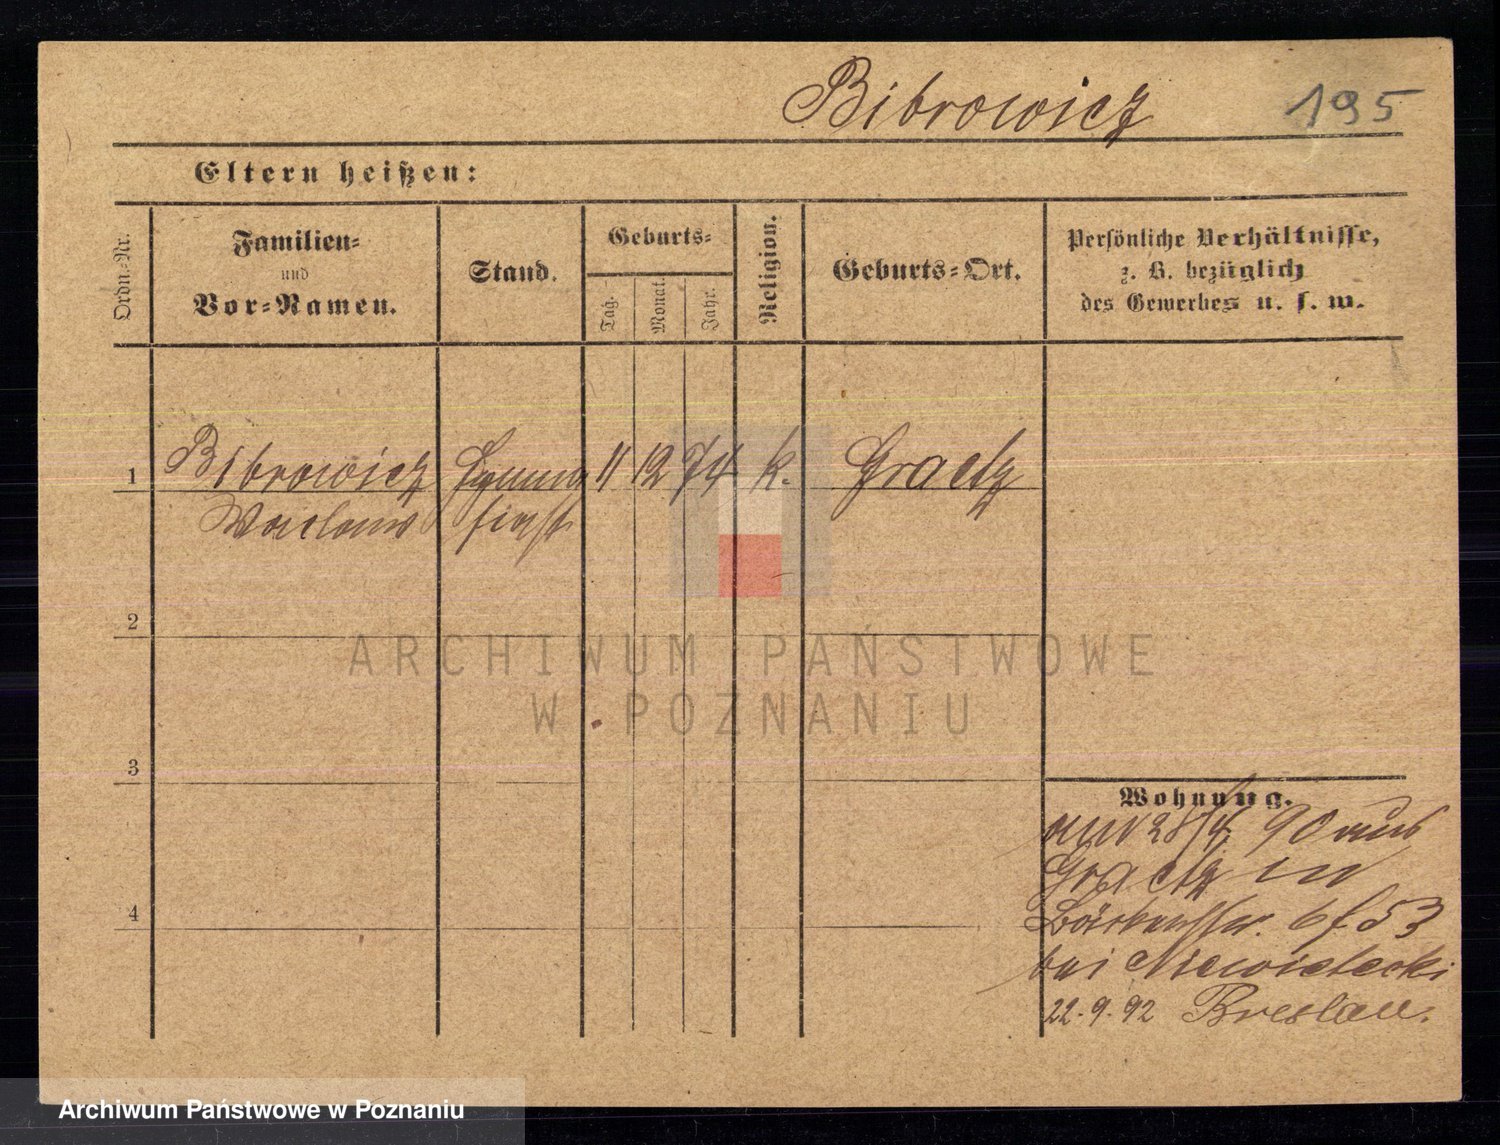 Bibrowicz 195
Eltern heißen:
Ordn.-Nr.
Familien-
und
Vor-Namen.
Stand.
Geburts-
Tag.
Monat.
Jahr.
Religion.
Geburts-Ort.
Persönliche Verhältnisse,
z. B. bezüglich
des Gewerbes u. s. w.
1 Bibrowicz 11 12 74 k. Graetz
Waclaw
2
ARCHIWUM PAŃSTWOWE
W POZNANIU
3
Wohnung.
28/4 90 aus
Graetz in
6 53
bei Niewietecki
4
22.9.92 Breslau.
Archiwum Państwowe w Poznaniu